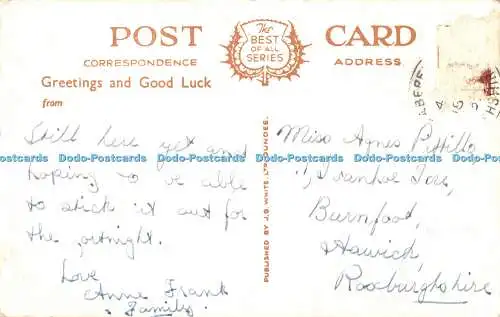 POST CARD
The
BEST
OF ALL
SERIES
CORRESPONDENCE
ADDRESS
Greetings and Good Luck
from
Still here yet and
hoping to be able
to stick it out for
the ortnight.
Love
Anne Frank
Family.
PUBLISHED BY J.B. WHITE, LTD., DUNDEE.
Miss Agnes Pittillo
11, Ivanhoe Tce,
Burnfoot,
Hawick,
Roxburghshire
Dodo-Postcards Dodo-Postcards Dodo-Postcards Dodo-Postcards Dodo-Postcards Dodo-Postcards